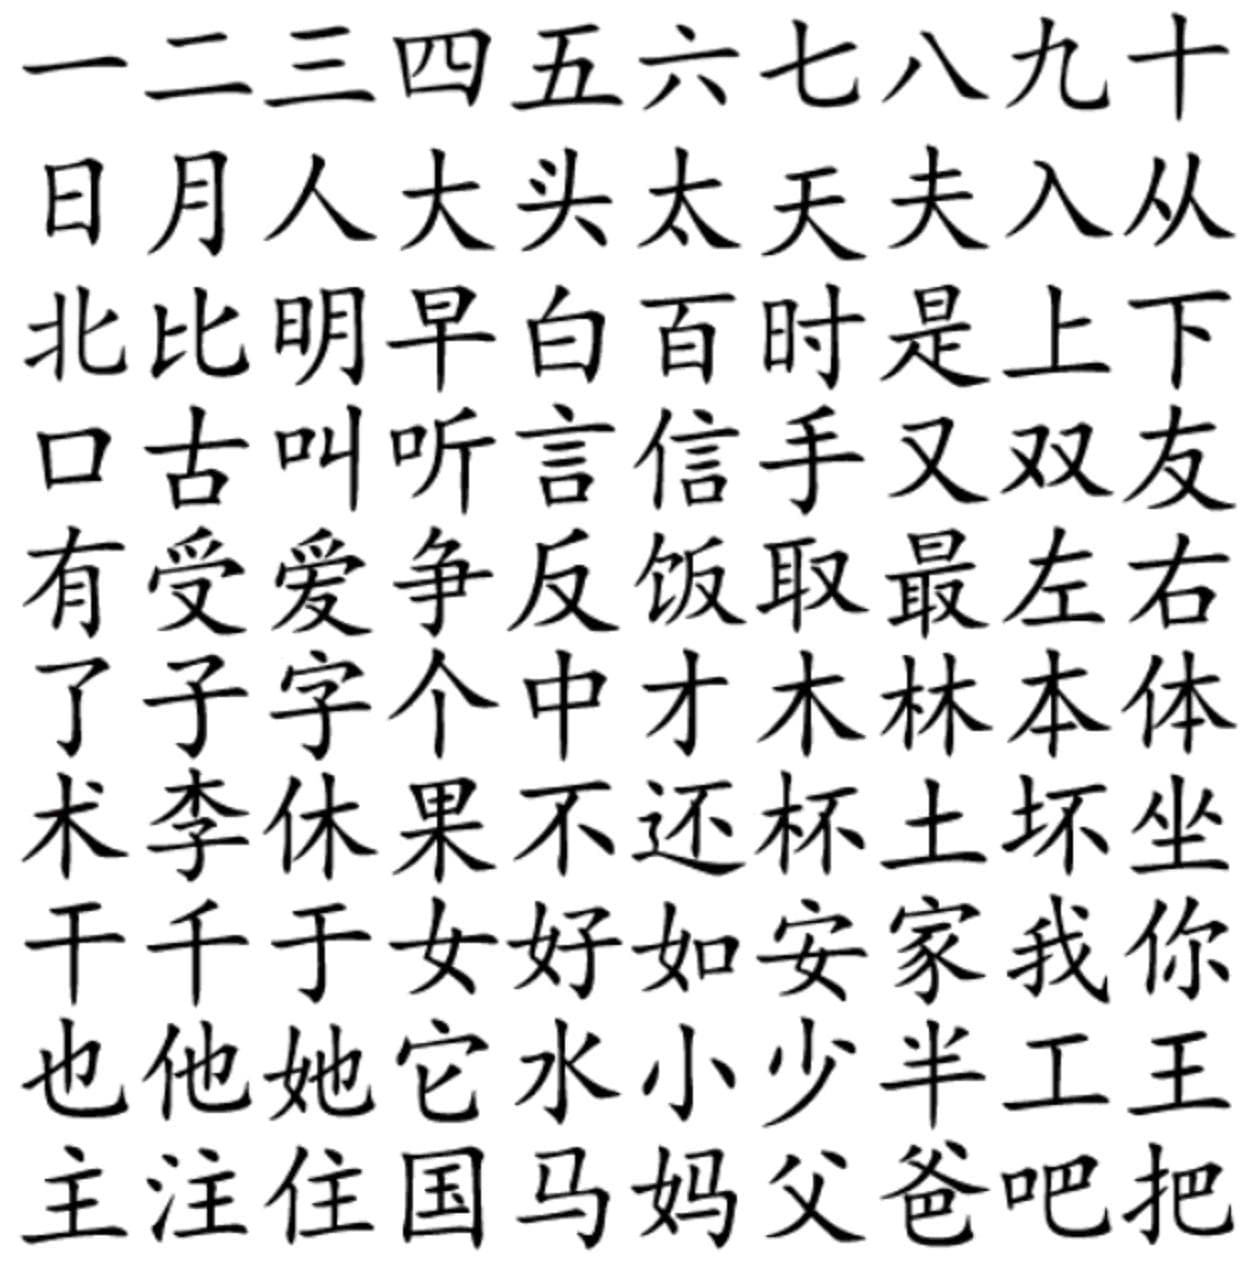 一二三四五六七八九十
日月人大头太天夫入从
北比明早白百时是上下
口古叫听言信手又双友
有受爱争反饭取最左右
了子字个中才木林本体
术李休果不还杯土坏坐
干千于女好如安家我你
也他她它水小少半工王
主注住国马妈父爸吧把